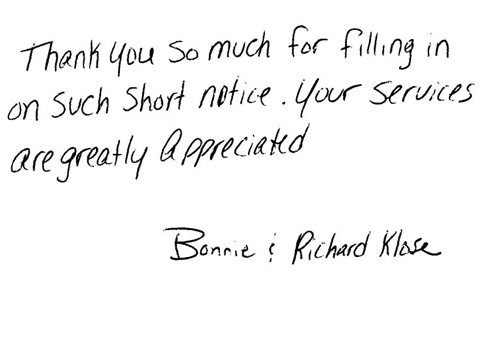 Thank you so much for filling in
on such short notice. Your services
are greatly appreciated
Bonnie & Richard Klose